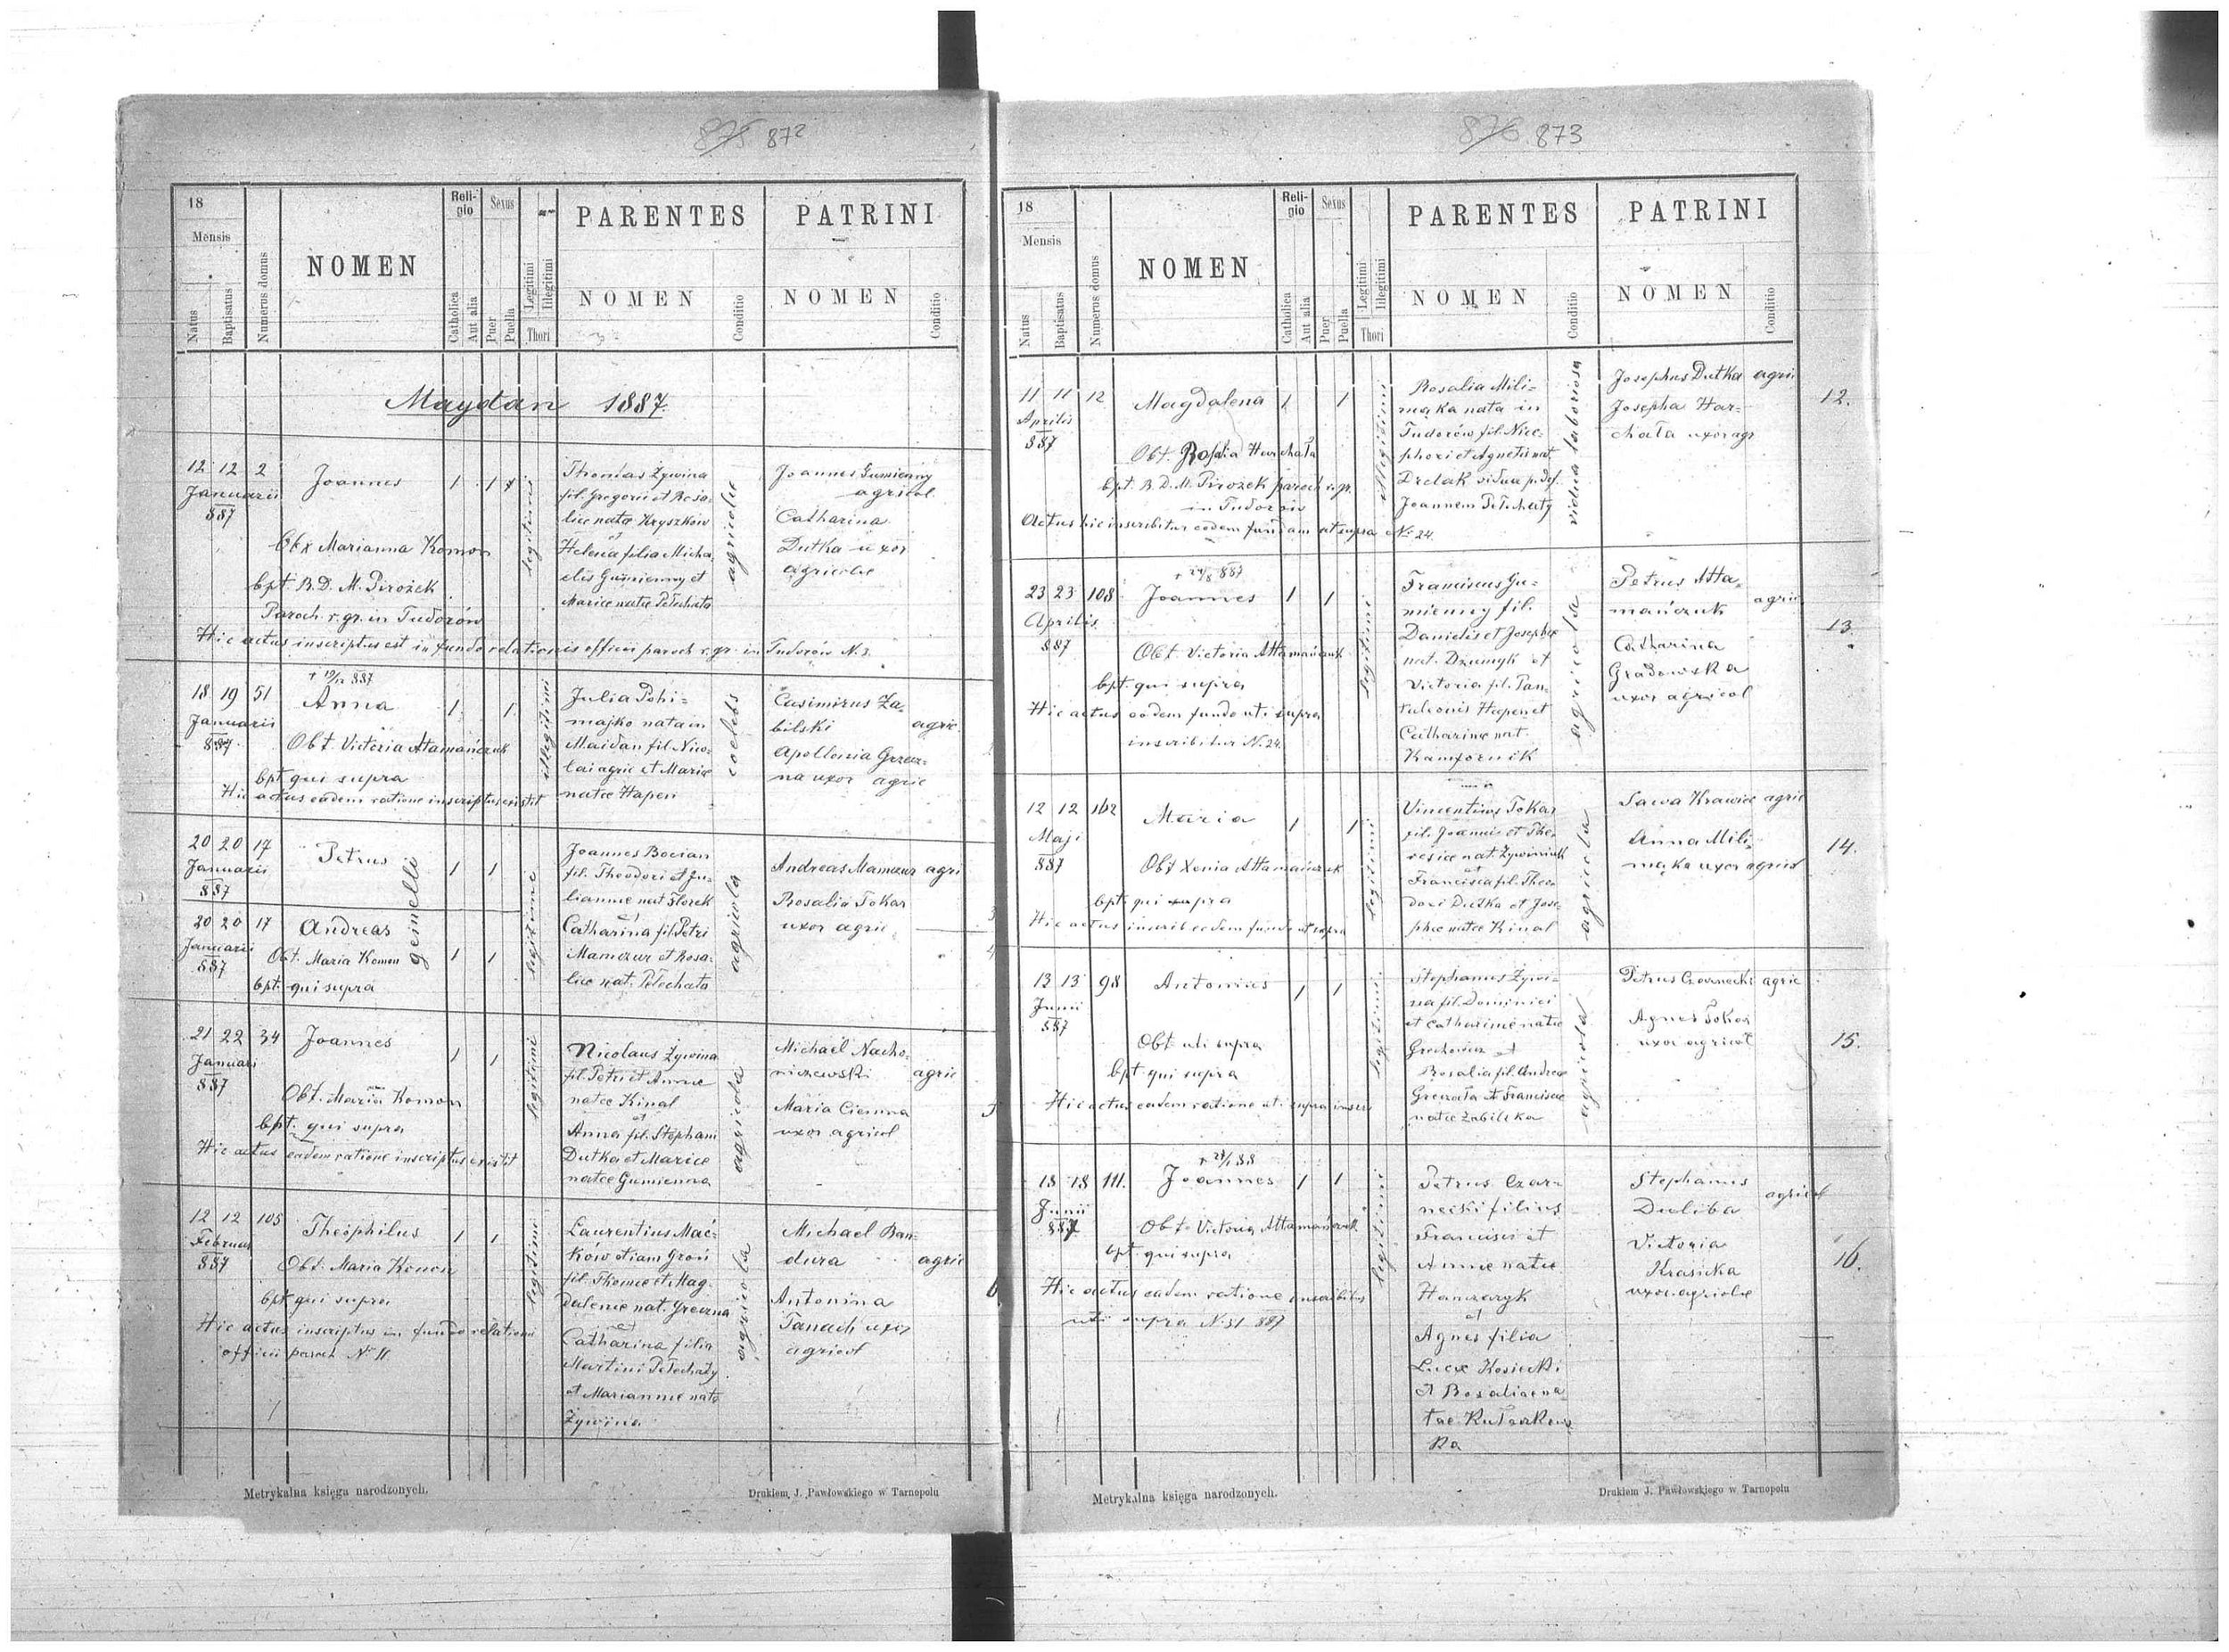 875 872
18
Mensis
Natus
Baptisatus
Numerus domus
NOMEN
Religio
Catholica
Aut alia
Sexus
Puer
Puella
Legitimi
Illegitimi
Thori
PARENTES
NOMEN
Conditio
PATRINI
NOMEN
Conditio
Maydan 1887.
12 12 2
Januarii
887
Joannes
1 1
legitimi
Obx Marianna Komon
bpt R.D. M. Pirożek
Paroch. r. gr. in Tudorów
Hic actus inscriptus est in fundo relationis officii paroch r. gr. in Tudorów N. 3.
Thomas Żywina
fil. Gregorii et Rosa-
liae natae Kryszków
et
Helena filia Micha
elis Gumienny et
Mariae natae Pełechata
agricolae
Joannes Gumienny
agricol.
Catharina
Dutka uxor
agricolae
18 19 51
Januarii
887
+ 19/12 887
Anna
1 1
illegitimi
Obt Victoria Atamańczuk
bpt qui supra
Hic actus eadem ratione inscriptus existit
Julia Pohi-
majko nata in
Maidan fil. Nico-
lai agric et Mariae
natae Hapen
coelebs
Casimirus Za-
bilski agric.
Apollonia Greczy-
na uxor agric
20 20 17
Januarii
887
Petrus
1 1
20 20 17
Januarii
887
Andreas
gemelli
1 1
Obt. Maria Komon
bpt. qui supra
legitime
Joannes Bocian
fil. Theodori et Ju-
liannae nat Florek
et
Catharina fil. Petri
Mamczur et Rosa-
liae nat. Pełechata
agricola
Andreas Mamczur agri
Rosalia Tokar
uxor agric.
3
4
21 22 34
Januari
887
Joannes
1 1
Obt. Maria Komon
bpt. qui supra
Hic actus eadem ratione inscriptus existit
legitimi
Nicolaus Żywina
fil. Petri et Annae
natae Kinal
et
Anna fil. Stephani
Dutka et Mariae
natae Gumienna
agricola
Michael Nacho-
niczewski agric
Maria Ciemna
uxor agricol
5
12 12 105
Februar
887
Theophilus
1 1
Obt. Maria Komon
bpt qui supra
Hic actus inscriptus in fundo relationi
officii paroch N. 11
legitimi
Laurentius Mać-
ków etiam Groń
fil. Thomae et Mag-
dalenae nat. Greczna
et
Catharina filia
Martini Pełechaty
et Mariannae nata
Żywina
agricola
Michael Ban-
dura agric
Antonina
Panach uxor
agricol
6
Metrykalna księga narodzonych.
Drukiem J. Pawłowskiego w Tarnopolu
876 873
18
Mensis
Natus
Baptisatus
Numerus domus
NOMEN
Religio
Catholica
Aut alia
Sexus
Puer
Puella
Legitimi
Illegitimi
Thori
PARENTES
NOMEN
Conditio
PATRINI
NOMEN
Conditio
11 11 12
Aprilis
887
Magdalena
1 1
Obt. Rosalia Harchała
bpt. R. D. M. Pirożek paroch r. gr.
in Tudorów
Actus hic inscribitur eodem fundam ut supra No 24.
illegitimi
Rosalia Mili-
mąka nata in
Tudorów fil. Nice-
phori et Agnetis nat
Drelak vidua p. def.
Joannem Pełechaty
vidua laboriosa
Josephus Dutka agric
Josepha Har-
chała uxor agr
12.
23 23 108
Aprilis
887
+ 24/8 887
Joannes
1 1
Obt. Victoria Attamańczuk
bpt. qui supra
Hic actus eodem fundo uti supra
inscribitur N. 24.
legitimi
Franciscus Gu-
mienny fil.
Danielis et Josephae
nat. Dzumyk et
Victoria fil. Pan-
taleonis Hapen et
Catharinae nat.
Kamfornik
agricola
Petrus Atta-
mańczuk agric
Catharina
Gradowska
uxor agricol
13.
12 12 162
Maji
887
Maria
1 1
Obt Xenia Attamańczuk
bpt. qui supra
Hic actus inscrib eodem fundo ut supra
legitimi
Vincentius Tokar
fil. Joannis et The-
resiae nat. Żywiniuk
et
Francisca fil. Theo-
dori Dutka et Jose-
phae natae Kinal
agricola
Sawa Krawiec agric
Anna Mili-
mąka uxor agricol
14.
13 13 98
Junii
887
Antonius
1 1
Obt uti supra
bpt qui supra
Hic actus eadem ratione uti supra inscri
legitimi
Stephanus Żywi-
na fil. Dominici
et Catharinae natae
Grochowicz et
Rosalia fil. Andreae
Greczyła et Franciscae
natae Zabilska
agricola
Petrus Czarnecki agric
Agnes Tokar
uxor agricol
15.
18 18 111.
Junii
887
+ 27/1 88
Joannes
1 1
Obt Victoria Attamańczuk
bpt. qui supra
Hic actus eadem ratione inscribitur
uti supra N. 31 887
legitimi
Petrus Czar-
necki filius
Francisci et
Annae natae
Hanczaryk
et
Agnes filia
Lucae Kosiecki
et Rosaliae na
tae Kułaszkows
ka
Stephanus
Duliba agricol
Victoria
Krasicka
uxor agricolae
16.
Metrykalna księga narodzonych.
Drukiem J. Pawłowskiego w Tarnopolu